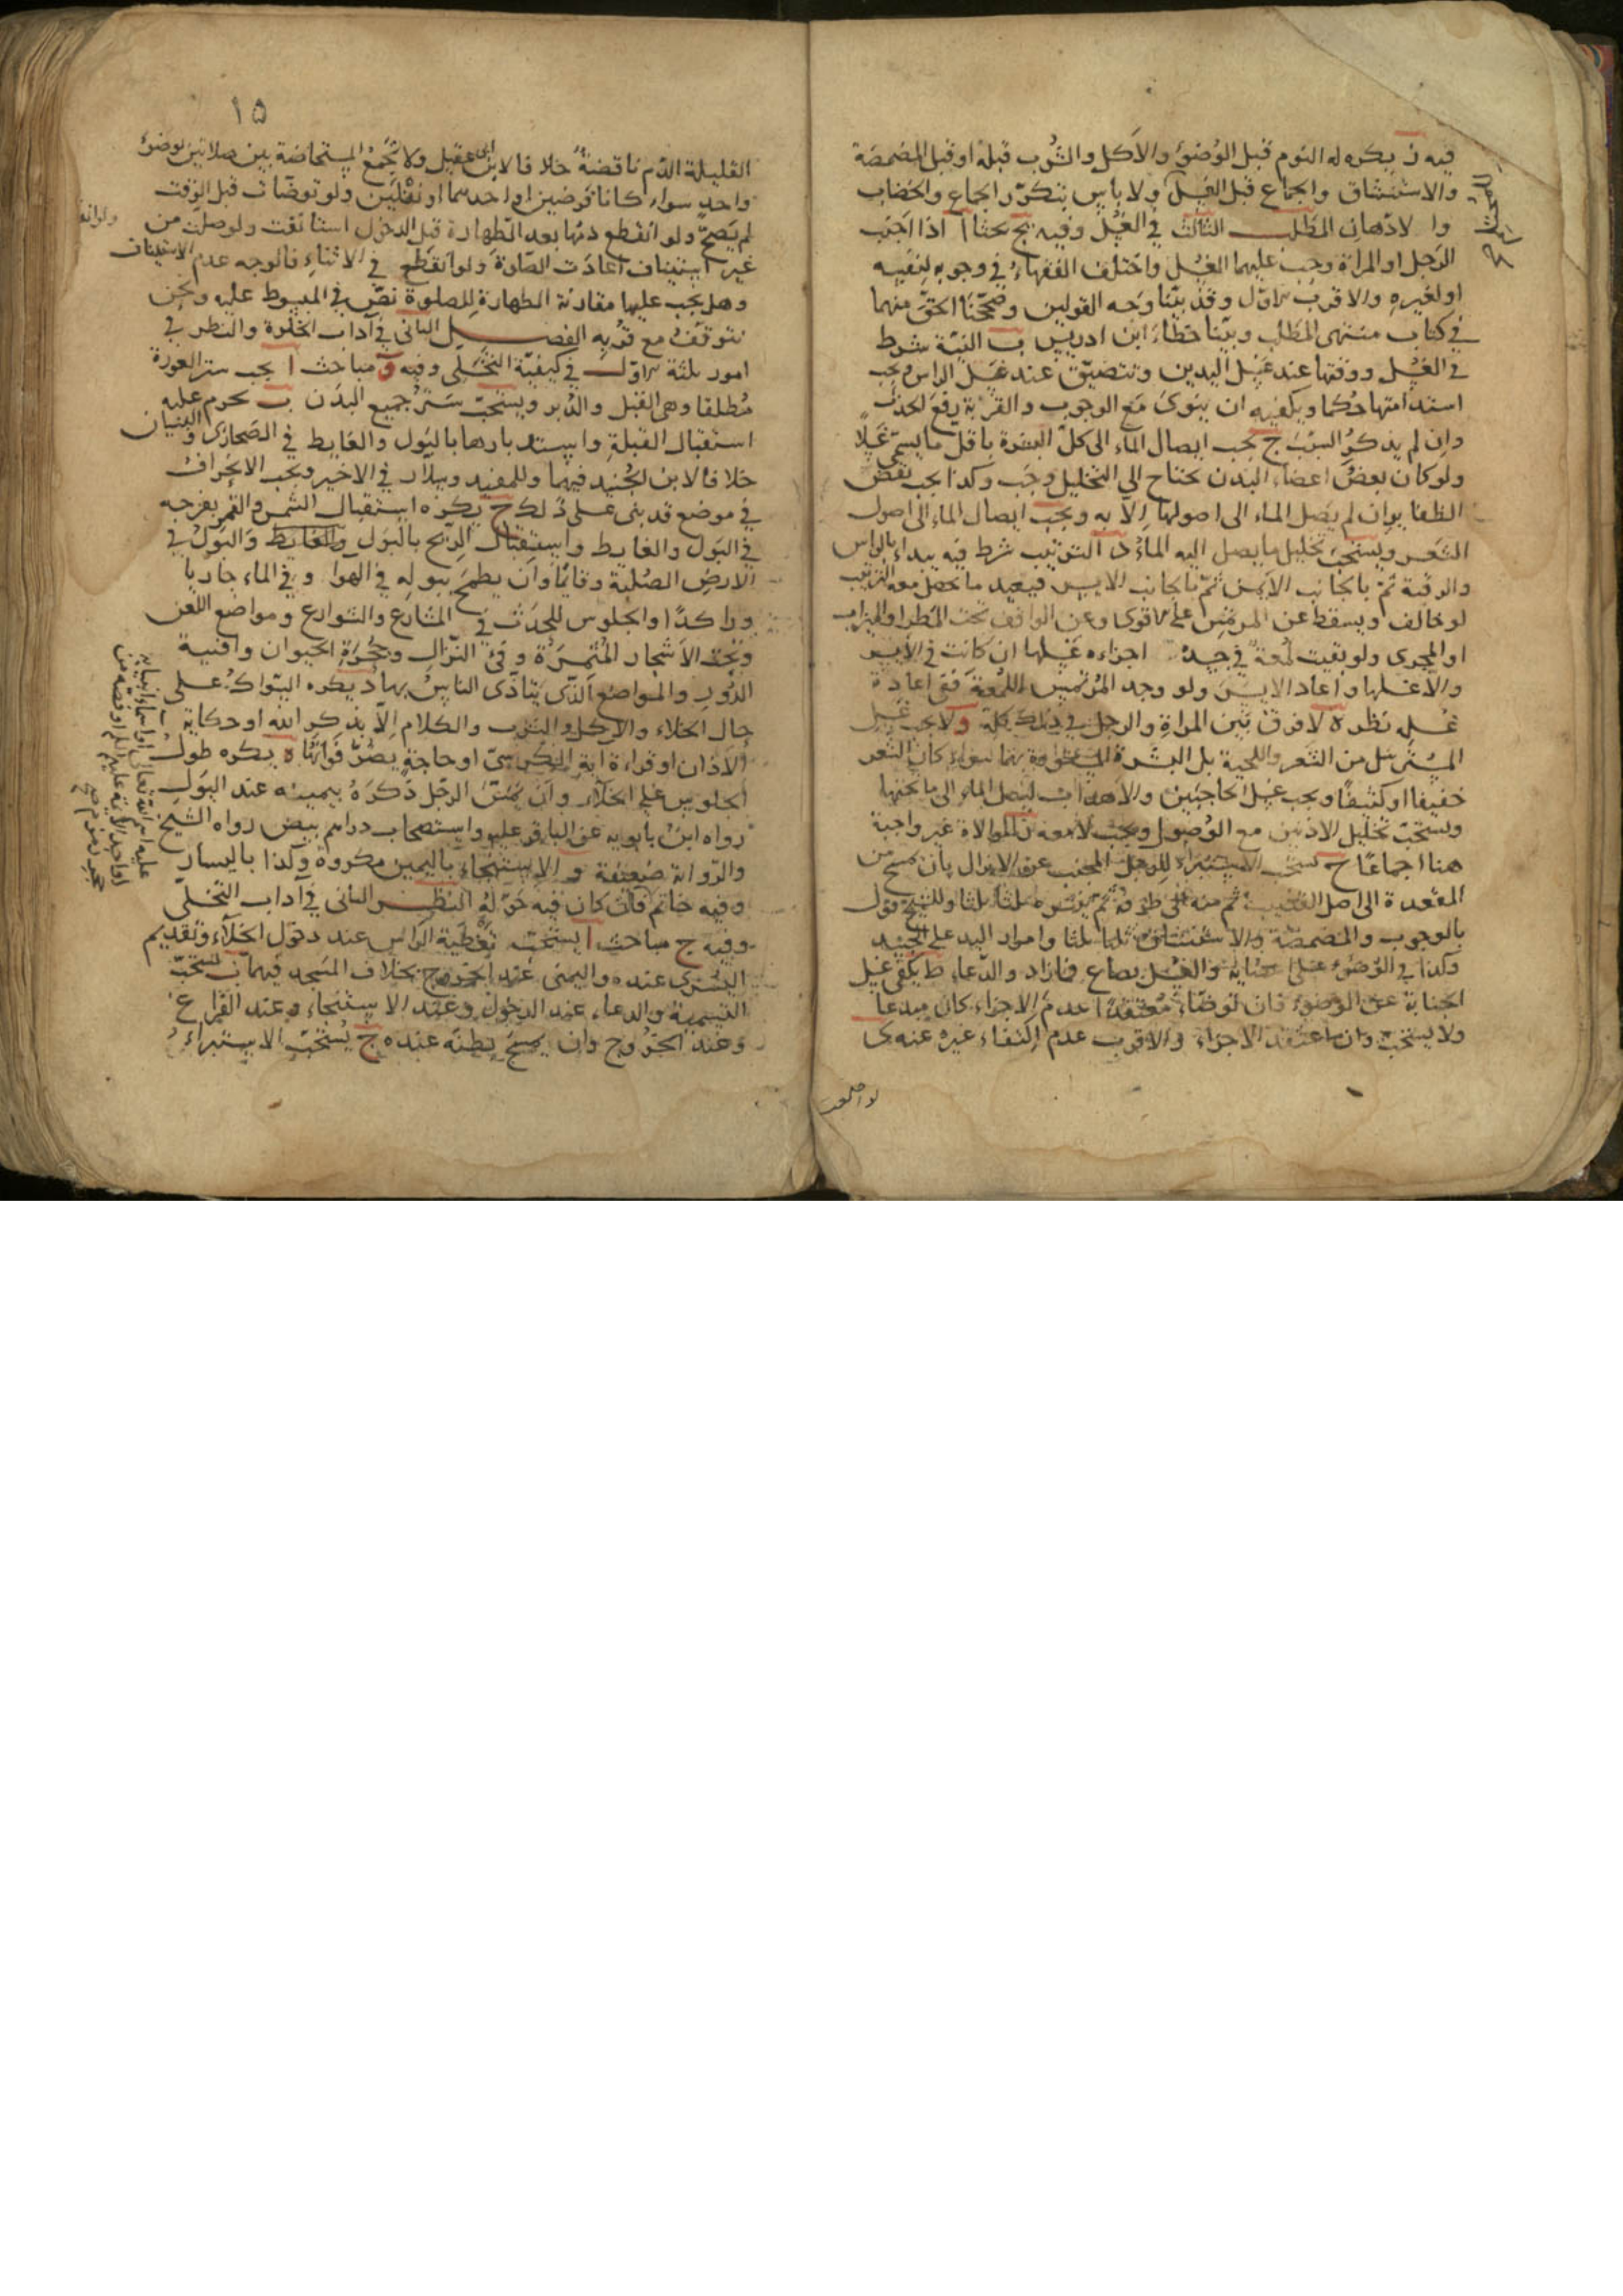 فيه ز يكره له النوم قبل الوضوء والاكل والشرب قبله او قبل المضمضة
والاستنشاق والجماع قبل الغسل ولا باس بتكرر الجماع والخضاب
وا لادهان المطلب الثالث في الغسل وفيه يج بحثا ا اذا اجنب
الرجل او المراة وجب عليهما الغسل واختلف الفقهاء في وجوبه لنفسه
او لغيره والاقرب الاول وقد بيّنا وجه القولين وصححنا الحق منهما
في كتاب منتهى المطلب وبينا خطاء ابن ادريس ب النية شرط
في الغسل ووقتها عند غسل اليدين وتتضيق عند غسل الراس ويجب
استدامتها حكما ويكفيه ان ينوى مع الوجوب والقربة رفع الحدث
وان لم يذكر السبب ج يجب ايصال الماء الى كل البشرة باقل ما يسمى غسلا
ولو كان بعض اعضاء البدن يحتاج الى التخليل وجب وكذا يجب نقض
الظفاير ان لم يصل الماء الى اصولها الا به ويجب ايصال الماء الى اصول
الشعر ويستحب تخليل ما يصل اليه الماء د الترتيب شرط فيه يبداء بالراس
والرقبة ثم بالجانب الايمن ثم بالجانب الايسر فيعيد ما يحصل معه الترتيب
لو خالف ويسقط عن المرتمس على الاقوى وعن الواقف تحت المطر او الميزاب
او المجرى ولو بقيت لمعة في جسده اجزاءه غسلها ان كانت في الايسر
والا غسلها واعاد الايسر ولو وجد المرتمس اللمعة ففى اعادة
غسله نظر ه لا فرق بين المراة والرجل في ذلك كله و لا يجب غسل
المسترسل من الشعر واللحية بل البشرة المستورة بهما سواء كان الشعر
خفيفا او كثيفا ويجب غسل الحاجبين والاهداب ليصل الماء الى ما تحتها
ويستحب تخليل الاذنين مع الوصول ويجب لا معه ز الموالاة غير واجبة
هنا اجماعا ح يستحب الاستبراء للرجل المجنب عن الانزال بان يمسح من
المقعدة الى اصل القضيب ثم منه الى طرفه ثم ينتره ثلثا ثلثا وللشيخ قول
بالوجوب والمضمضة والاستنشاق ثلثا ثلثا وامرار اليد على الجسد
وكذا في الوضوء والغسل بصاع فما زاد والدعاء ط يكفى غسل
الجنابة عن الوضوء فان توضاء معتقدا عدم الاجزاء كان مبدعا
ولا يستحب وان اعتقد الاجزاء والاقرب عدم اكتفاء غيره عنه ى
١٥
القليلة الدم ناقضة خلافا لابن ابى عقيل ولا تجمع المستحاضة بين صلاتين بوضوء
واحد سواء كانا فرضين او احدهما او نفلين ولو توضات قبل الوقت
لم يصح ولو انقطع دمها بعد الطهارة قبل الدخول استانفت ولو صلت من
غير استيناف اعادت الصلوة ولو انقطع في الاثناء فالوجه عدم الاستيناف
وهل يجب عليها مقارنة الطهارة للصلوة نص في المبسوط عليه ونحن
نتوقف مع قربه الفصل الثانى في آداب الخلوة والنظر في
امور ثلثة الاول في كيفية التخلى وفيه و مباحث ا يجب ستر العورة
مطلقا وهى القبل والدبر ويستحب ستر جميع البدن ب يحرم عليه
استقبال القبلة واستدبارها بالبول والغايط في الصحارى والبنيان
خلافا لابن الجنيد فيهما وللمفيد وسلار في الاخير ويجب الانحراف
في موضع قد بنى على ذلك ج يكره استقبال الشمس والقمر بفرجه
في البول والغايط واستقبال الريح بالبول والغايط والبول في
الارض الصلبة وقائما وان يطمح ببوله في الهوا وفي الماء جاريا
وراكدا والجلوس للحدث في المشارع والشوارع ومواضع اللعن
وتحت الاشجار المثمرة وفئ النزال وجحرة الحيوان وافنية
الدور والمواضع الذى يتاذى الناس بها د يكره السواك على
حال الخلاء والاكل والشرب والكلام الا بذكر الله او حكاية
الاذان او قراءة اية الكرسى او حاجة يضر فواتها ه يكره طول
الجلوس على الخلاء وان يمس الرجل ذكره بيمينه عند البول
رواه ابن بابويه عن الباقر عليه واستصحاب دراهم بيض رواه الشيخ
والرواية ضعيفة و الاستنجاء باليمين مكروه وكذا باليسار
وفيه خاتم فان كان فيه حوله النظر الثانى في اداب التخلى
وفيه ج مباحث ا يستحب تغطية الراس عند دخول الخلاء وتقديم
اليسرى عنده واليمنى عند الخروج بخلاف المسجد فيهما ب يستحب
التسمية والدعاء عند الدخول وعند الاستنجاء وعند الفراغ
وعند الخروج وان يمسح بطنه عنده ج يستحب الاستبراء